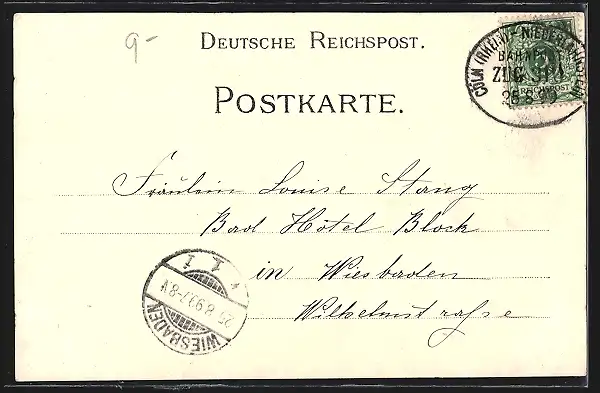 9-
DEUTSCHE REICHSPOST.
POSTKARTE.
CÖLN (RHEIN)-NIEDERLAHNSTEIN
BAHNPOST
ZUG
REICHSPOST
Fräulein Louise Stang
Bad Hôtel Block
in Wiesbaden
Wilhelmstraſse
1 1
7-8V
WIESBADEN